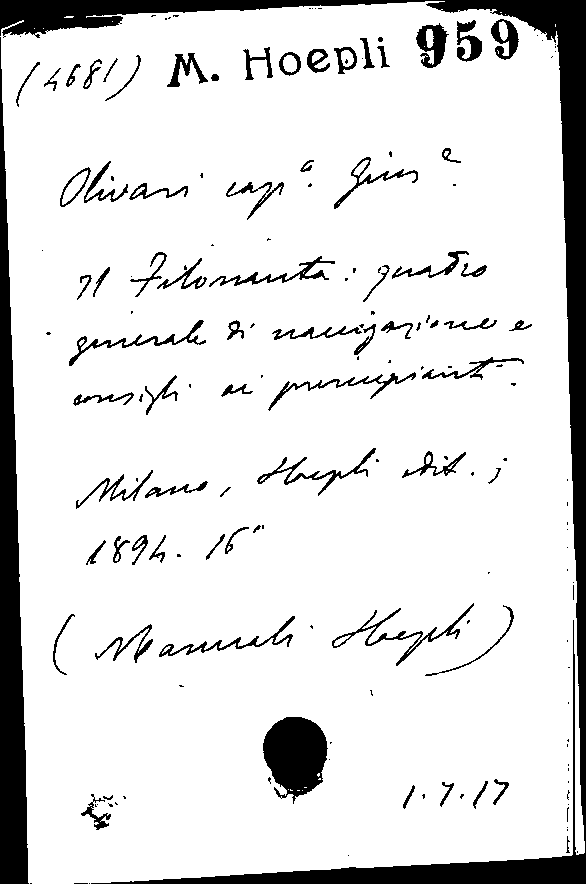 (4681) M. Hoepli 959
Olivari capª. Giusᵉ.
Il Filonauta: quadro
generale di navigazione e
consigli ai principianti.
Milano, Hoepli edit.;
1894. 16°
(Manuali Hoepli)
1.7.17